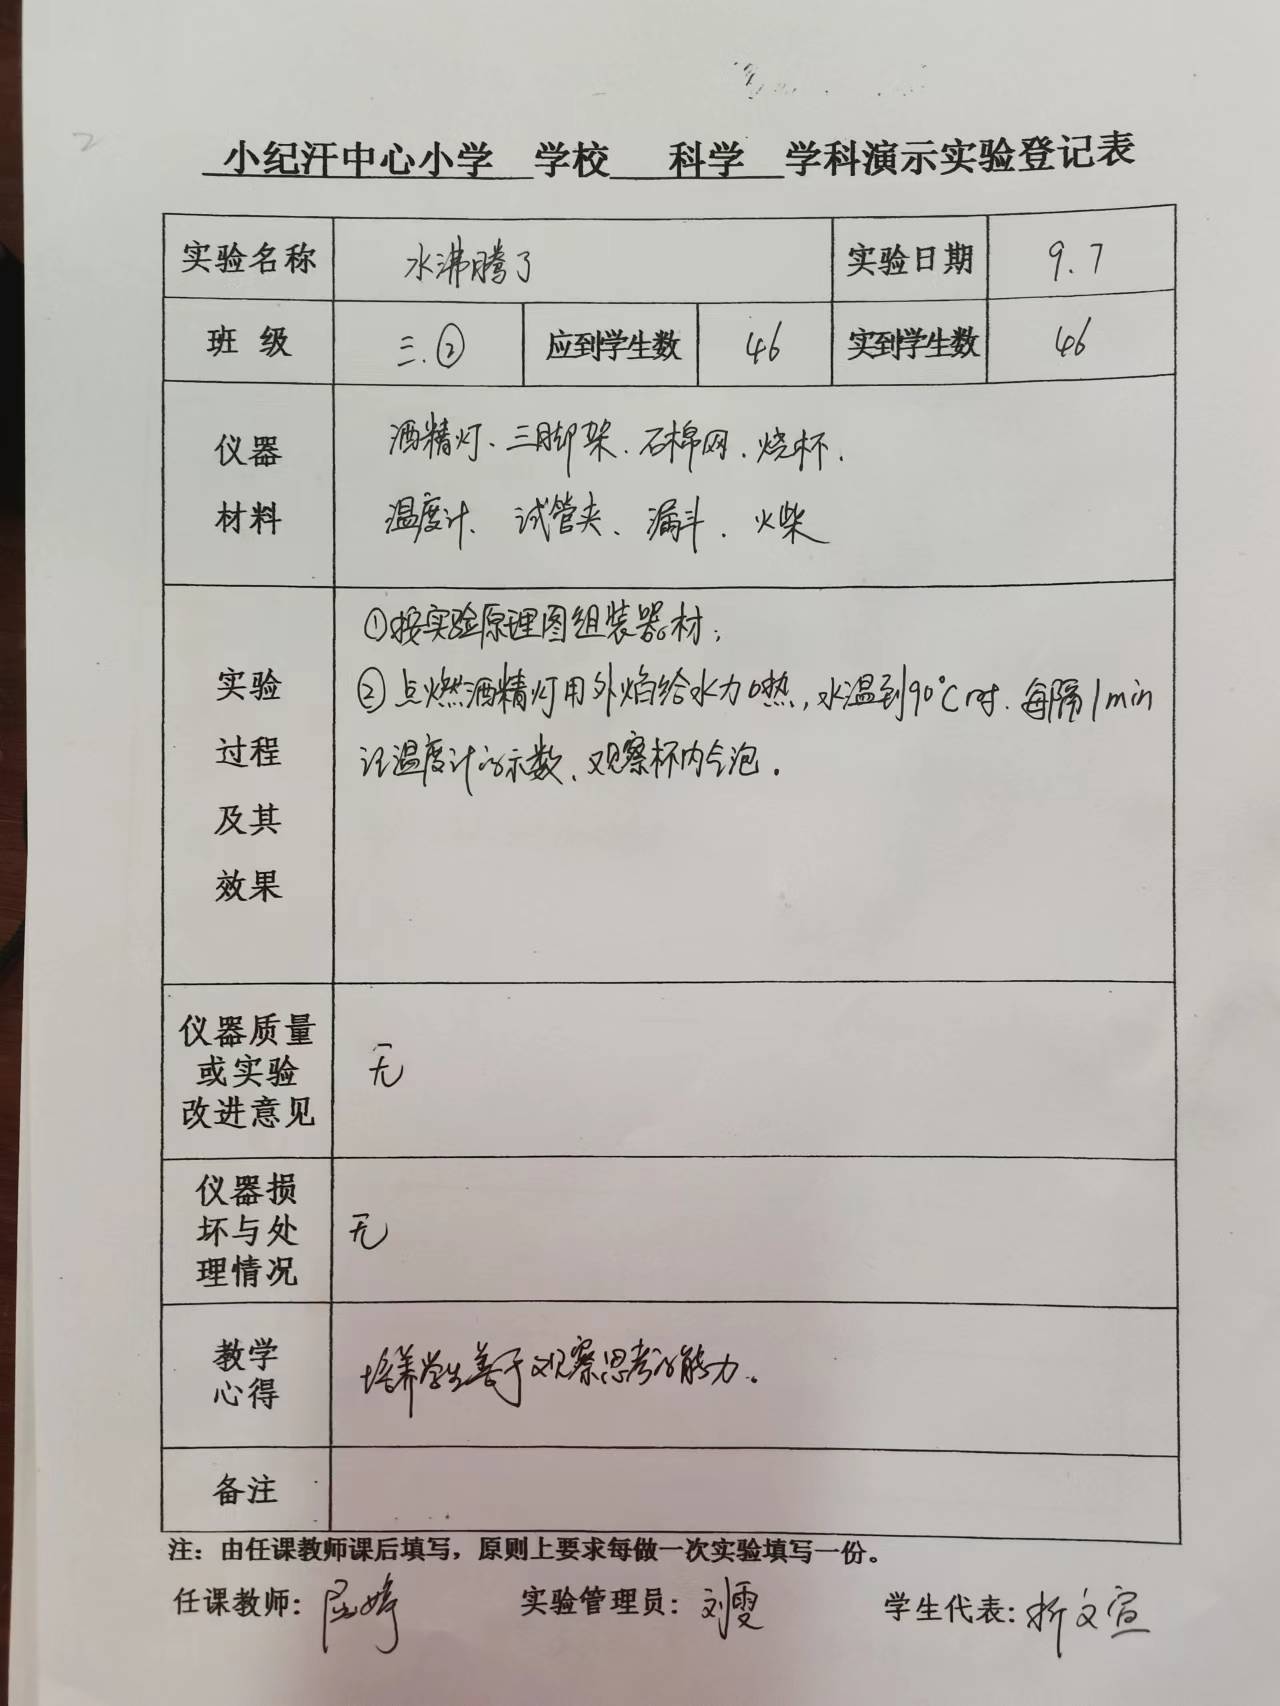 小纪汗中心小学 学校 科学 学科演示实验登记表
实验名称 水沸腾了 实验日期 9.7
班 级 三.② 应到学生数 46 实到学生数 46
仪器材料
酒精灯、三脚架、石棉网、烧杯、
温度计、试管夹、漏斗、火柴
实验过程及其效果
①按实验原理图组装器材；
②点燃酒精灯用外焰给水加热，水温到90℃时、每隔1min
记温度计的示数、观察杯内气泡。
仪器质量
或实验
改进意见
无
仪器损
坏与处
理情况
无
教学
心得
培养学生善于观察思考的能力。
备注
注：由任课教师课后填写，原则上要求每做一次实验填写一份。
任课教师：屈婷 实验管理员：刘雯 学生代表：折文宣